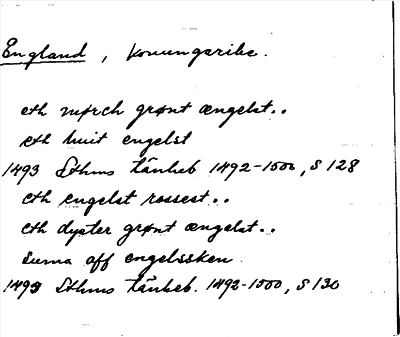 England, konungarike.
eth mørch grønt ængelst..
eth huit engelst
1493 Sthms tänkeb 1492-1500, S 128
eth engelst rossest..
eth dyster grønt ængelst..
suma aff engelssken.
1493 Sthms tänkeb. 1492-1500, S 130